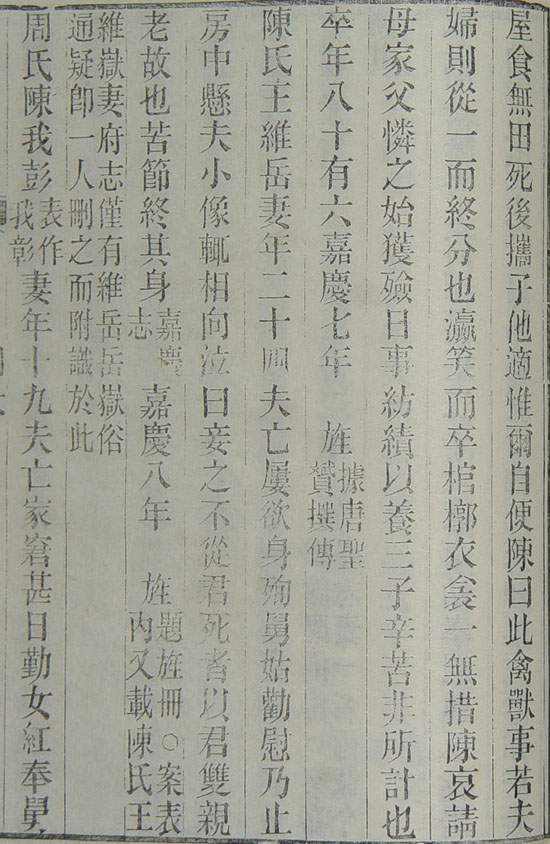 屋食無田死後攜子他適惟爾自便陳曰此禽獸事若夫
婦則從一而終分也瀛笑而卒棺槨衣衾一無措陳哀請
母家父憐之始獲殮日事紡績以養三子辛苦非所計也
卒年八十有六嘉慶七年　旌據唐聖
贊撰傳
陳氏王維岳妻年二十四夫亡屢欲身殉舅姑勸慰乃止
房中懸夫小像輒相向泣曰妾之不從君死者以君雙親
老故也苦節終其身嘉慶
志　嘉慶八年　旌題旌冊○案表
內又載陳氏王
維嶽妻府志僅有維岳岳嶽俗
通疑卽一人刪之而附識於此
周氏陳我彭表作
我彰妻年十九夫亡家窘甚日勤女紅奉舅